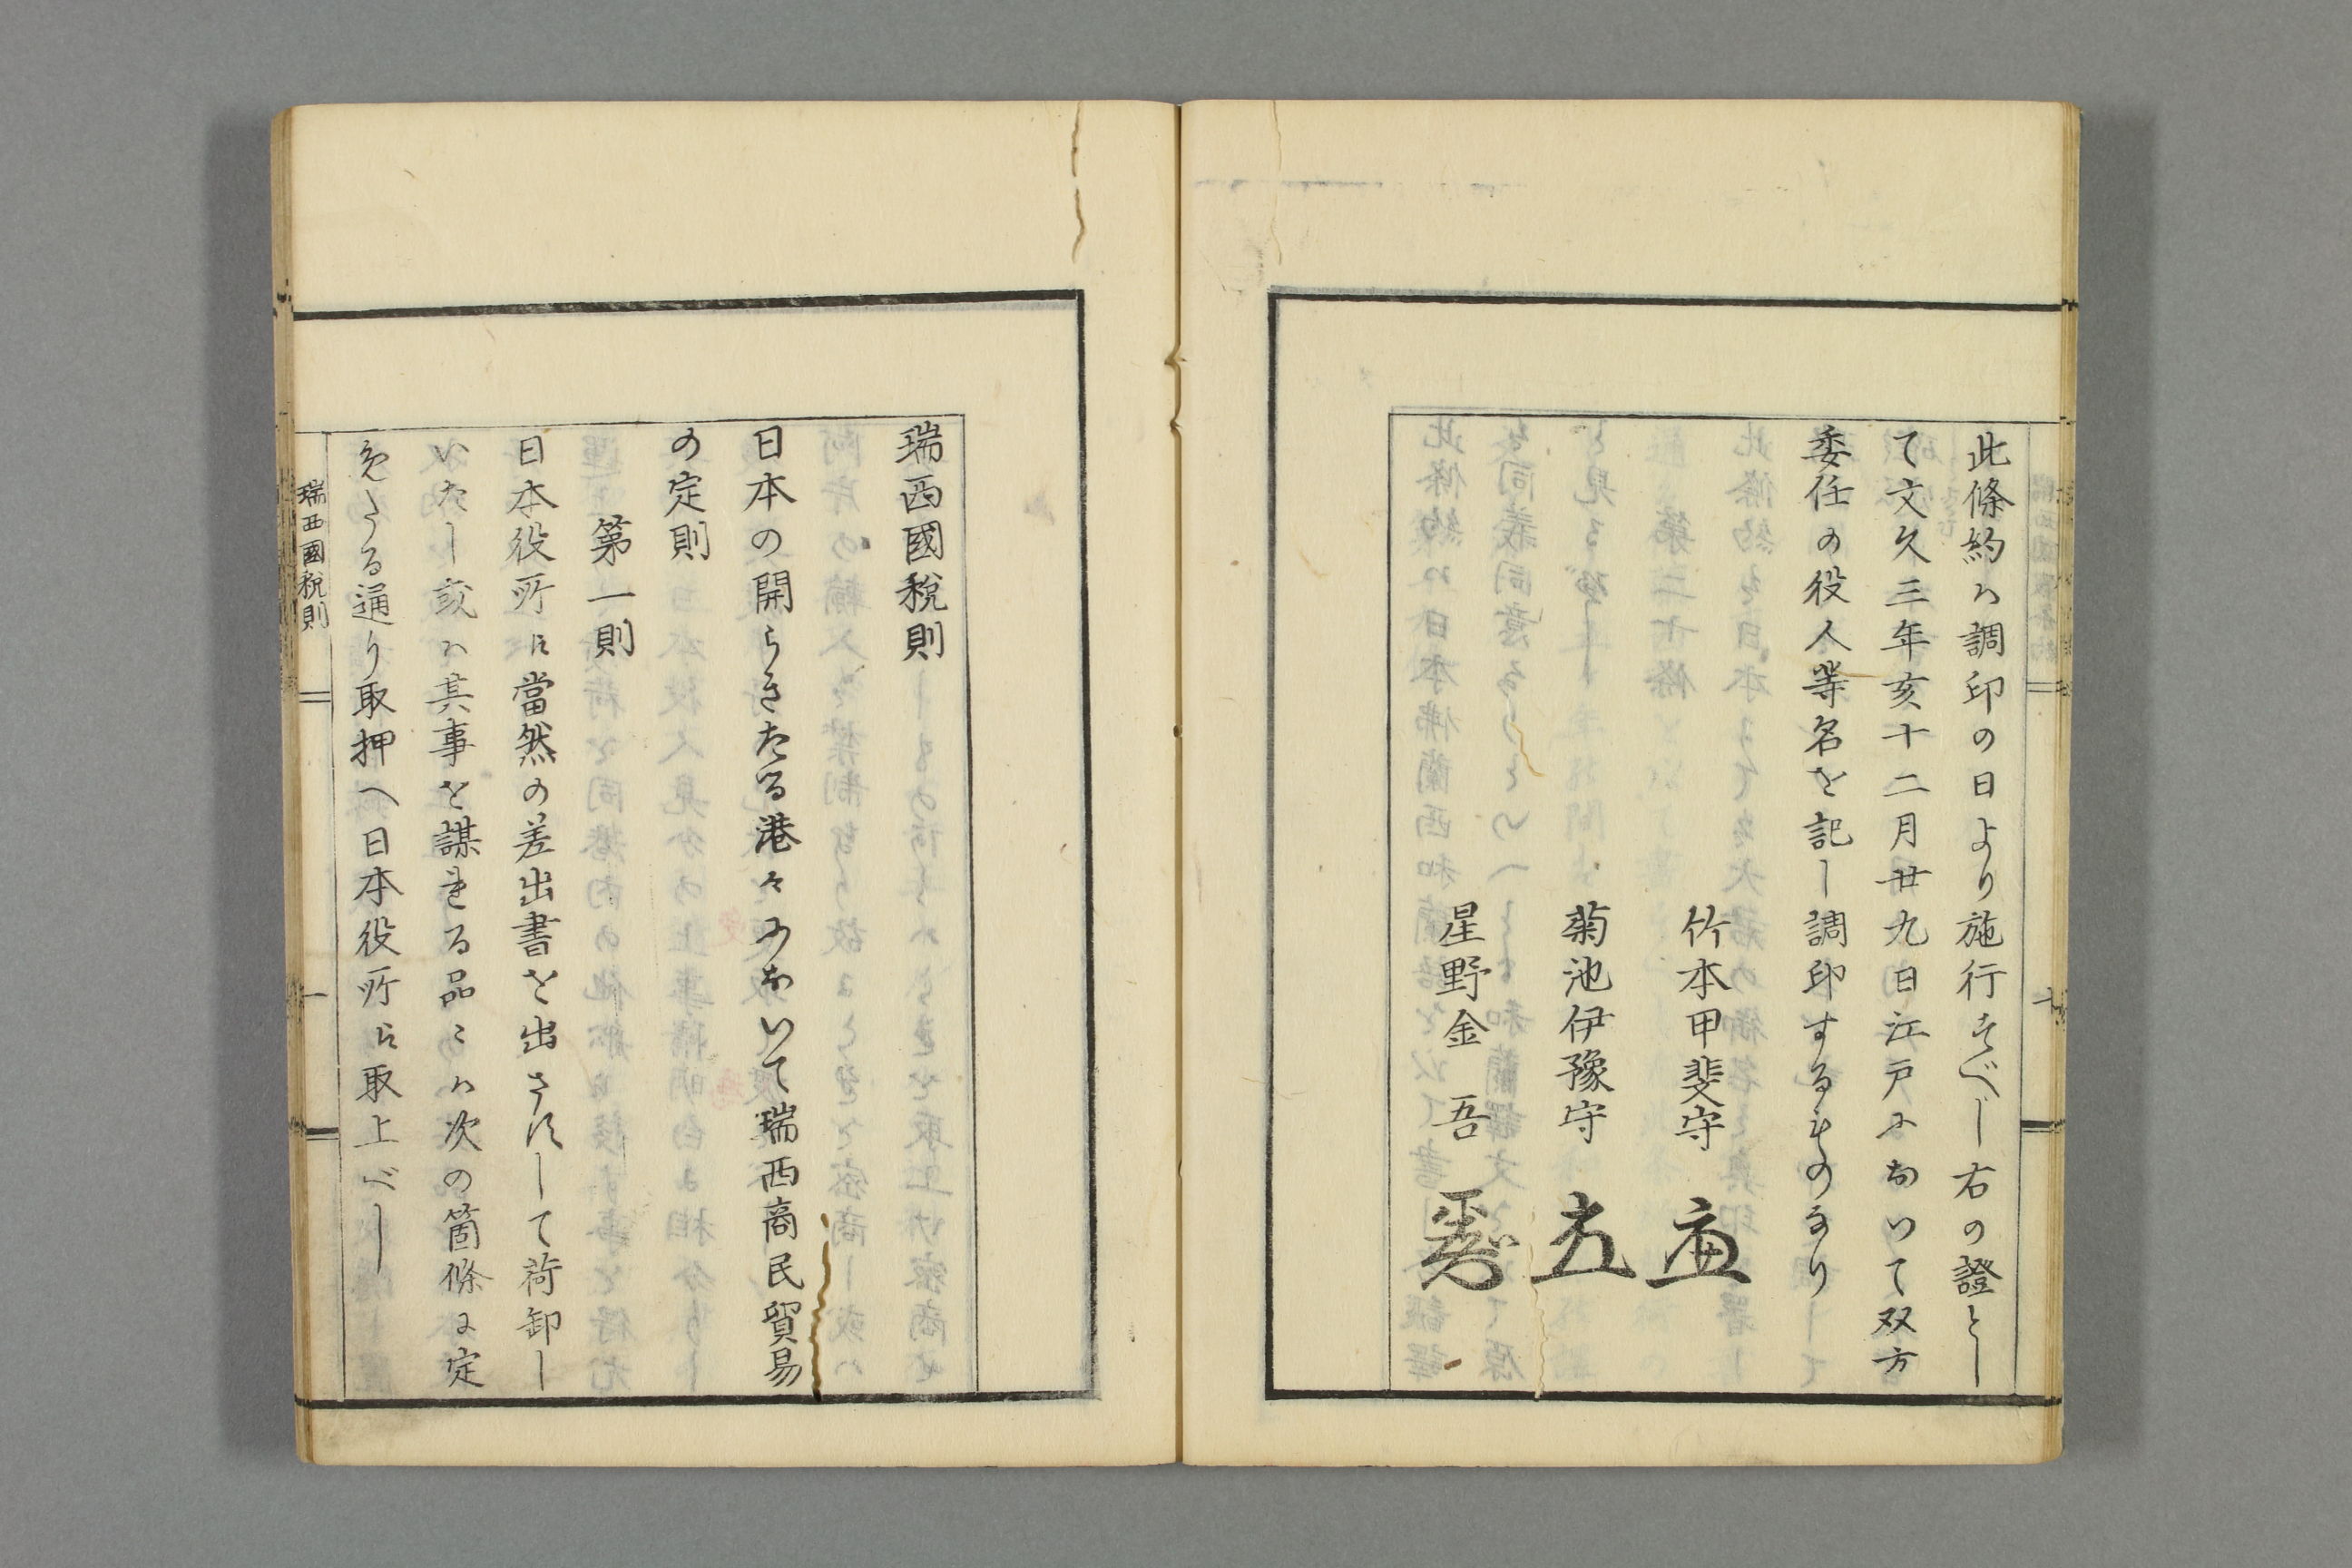 此條約ハ調印の日より施行すべし右の證とし
て文久三年亥十二月廿九日江戸において双方
委任の役人等名を記し調印するものなり
竹本甲斐守
菊池伊豫守
星野金吾
瑞西國税則
日本の開らきたる港々において瑞西商民貿易
の定則
第一則
日本役所に當然の差出書を出さずして荷卸し
いたし或ハ其事を謀れる品々ハ次の箇條に定
めたる通り取押へ日本役所に取上べし
瑞西國税則
一